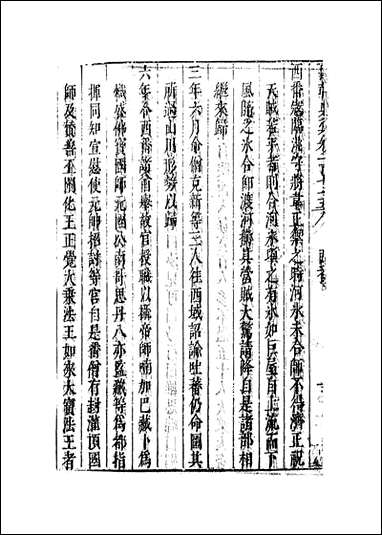 西番寇臨洮守將韋正禦之時河氷未合師不得濟正祝
天賊若平者則入合河未頃之有氷如巨屋自上流而下
風隨之氷合師渡河擣其營賊大驚請降自是諸部相
繼來歸
三年六月命僧克新等三人往西域詔諭吐蕃仍命圖其
所過山川形勢以歸
六年令西番諸酋舉故官授職以攝帝師喃加巴藏卜為
熾盛佛寶國師元國公南哥思丹八亦監藏等為都指
揮同知宣慰使元帥招討等官自是番僧有封灌頂國
師及贊善王闡化王正覺大乘法王如來大寶法王者